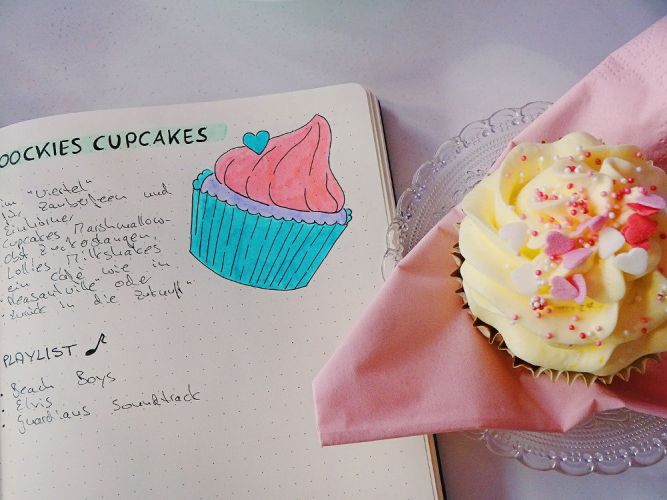 OOCKIES CUPCAKES
im "Viertel"
für Zauberfeen und
Einhörner
Cupcakes Marshmallow-
obst Zuckerstangen,
Lollies Milkshakes
ein Café wie in
"Pleasantville" oder
"Zurück in die Zukunft"
PLAYLIST
• Beach Boys
• Elvis
• Guardians Soundtrack